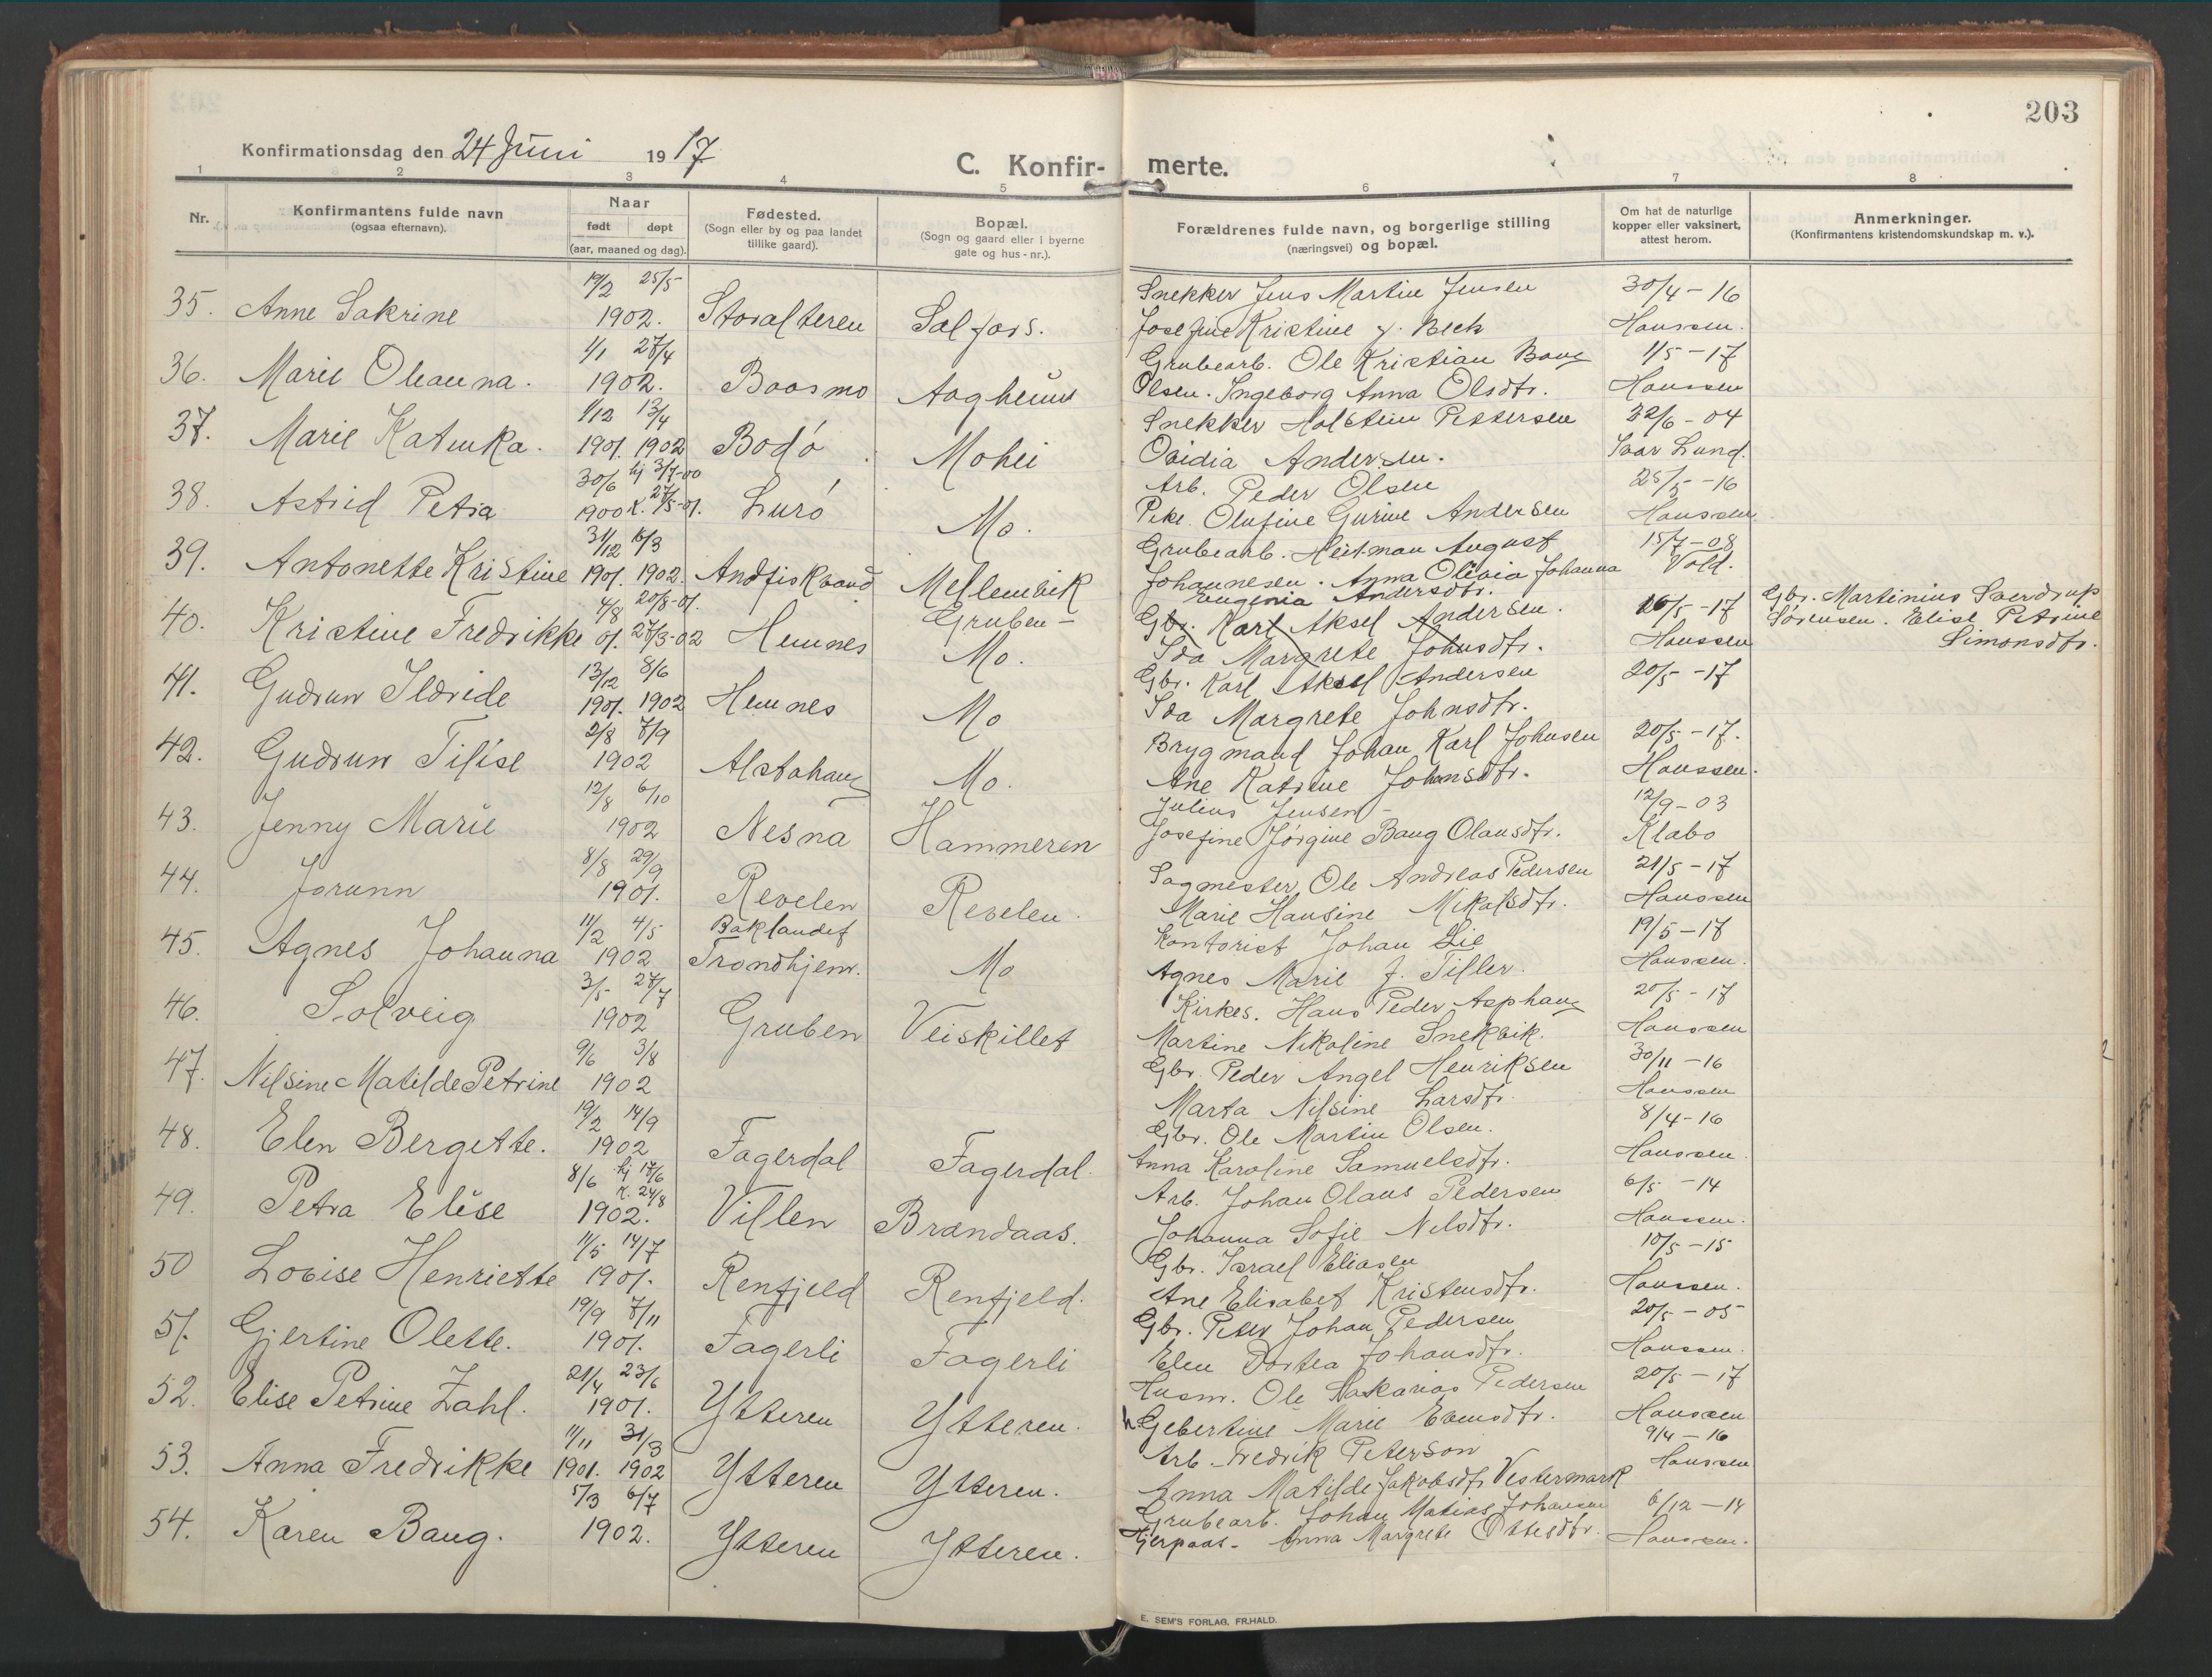 203
Konfirmationsdag den 24 Juni 1917
C. Konfir- merte.
1 2 3 4 5 6 7 8
Nr.
Konfirmantens fulde navn
(ogsaa efternavn).
Naar
født døpt
(aar, maaned og dag).
Fødested.
(Sogn eller by og paa landet
tillike gaard).
Bopæl.
(Sogn og gaard eller i byerne
gate og hus-nr.).
Forældrenes fulde navn, og borgerlige stilling
(næringsvei) og bopæl.
Om hat de naturlige
kopper eller vaksinert,
attest herom.
Anmerkninger.
(Konfirmantens kristendomskundskap m. v.).
19/2 25/5 Snekker Jens Martin Jensen 30/4 - 16
35. Anne Sakrine 1902. Storalteren Salfors. Josefine Kristine f. Bech Hanssen.
1/1 27/4 Grubearb. Ole Kristian Baug 1/5 - 17
36. Marie Oleanna. 1902. Baasmo Aagheim Olsen. Ingeborg Anna Olsdtr. Hanssen
1/12 13/4 Snekker Holstein Pettersen 22/6 - 04
37. Marie Katinka. 1901. 1902 Bodö Mohei Ovidia Andersen. Ivar Lund.
30/6 hj 3/7-00 Arb. Peder Olsen 25/5 - 16
38. Astrid Petra 1900 K. 27/5-01. Lurö Mo. Pike. Olufine Gurine Andersen Hanssen
31/12 16/3 Grubearb. Heitman August 15/7 - 08
39. Antonette Kristine 1901. 1902. Andfiskvand Mellemvik Johannesen. Anna Olivia Johanna Vold.
Eugenia Andersdtr.
4/8 20/8-01. Gruben- Gbr. Karl Aksel Andersen. 16/5 - 17 Gbr. Martinius Sverdrup
40. Kristine Fredrikke 01. 27/3-02 Hemnes Mo. Ida Margrete Johnsdtr. Hanssen Sörensen. Elise Petrine
Simonsdtr.
13/12 8/6 Gbr. Karl Aksel Andersen 20/5 - 17
41. Gudrun Ildride 1901. 1902 Hemnes Mo Ida Margrete Johnsdtr.
2/8 7/9 Brygmand Johan Karl Johnsen 20/5 - 17.
42. Gudrun Tilise 1902 Alstahaug Mo. Ane Katrine Johansdtr. Hanssen.
12/8 6/10 Julius Jensen - 12/9 - 03
43. Jenny Marie 1902 Nesna Hammeren Josefine Jörgine Baug Olausdtr. Klabo
8/8 29/9 Sagmester Ole Andreas Pedersen 21/5 - 17
44. Jorunn 1901. Revelen Revelen. Marie Hansine Mikalsdtr. Hanssen
11/2 4/5 Baklandet Kontorist Johan Lie 19/5 - 17
45. Agnes Johanna 1902 Trondhjem. Mo Agnes Marie f. Tiller. Hanssen.
3/5 27/7 Kirkes. Hans Peder Asphaug 20/5 - 17
46. Solveig 1902 Gruben Veiskillet Martine Nikoline Snekvik. Hanssen
9/6 3/8 Gbr. Peder Angel Henriksen 30/11 - 16
47. Nilsine Matilde Petrine 1902 Marta Nilsine Larsdtr. Hanssen
19/2 14/9 Gbr. Ole Martin Olsen. 8/4 - 16
48. Elen Bergette. 1902 Fagerdal Fagerdal. Anna Karoline Samuelsdtr. Hanssen.
8/6 hj 17/6 K. 24/8 Arb. Johan Olaus Pedersen 6/5 - 14
49. Petra Elise 1902. Villen Brændaas. Johanna Sofie Nilsdtr. Hanssen.
11/5 14/7 Gbr. Israel Eliasen 10/5 - 15
50 Lovise Henriette 1901. Renfjeld Renfjeld. Ane Elisabet Kristensdtr. Hanssen.
19/9 7/11 Gbr. Peter Johan Pedersen 20/5 - 05
51. Gjertine Olette. 1901. Fagerli Fagerli Elen Dortea Johansdtr. Hanssen.
21/4 23/6 Husm. Ole Sakarias Pedersen 20/5 - 17
52. Elise Petrine Zahl. 1901. Ytteren Ytteren. h. Gebertine Marie Evensdtr. Hanssen
11/11 31/3 Arb. Fredrik Peterson 9/4 - 16
53. Anna Fredrikke 1901. 1902 Ytteren Ytteren. Anna Matilde Jakobsdtr Vestermark Hanssen
5/3 6/7 Grubearb. Johan Matias Johansen 6/12 - 14
54. Karen Baug. 1902. Ytteren Ytteren. Hjerpaas- Anna Margrete Ottesdtr. Hanssen.
E. SEM'S FORLAG, FR.HALD.